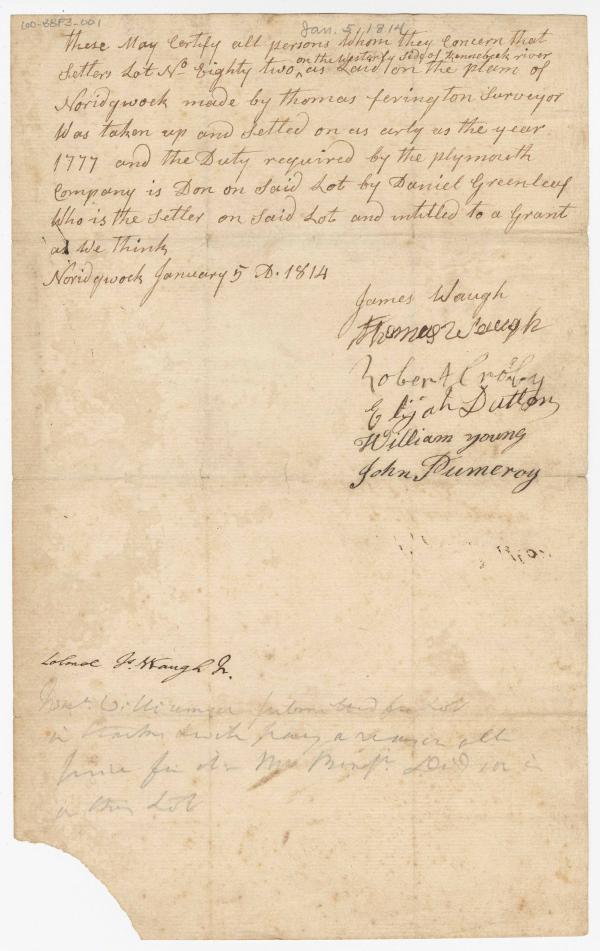 100-88P3-001
Jan. 5, 1814
These May Certify all persons Whom they Concern that
on the Westerly Side of Kennebeck river
Setlers Lot No Eighty two ^ as Laid on the plan of
Noridgwock made by thomas ferington Surveyor
Was taken up and Setled on as arly as the year
1777 and the Duty required by the plymouth
Company is Don on Said Lot by Daniel Greenleaf
Who is the Setler on Said Lot and intitled to a Grant
as We think
Noridgwock January 5 D. 1814
James Waugh
Thomas Waugh
Robert Crosby
Elijah Dutton
William Young
John Pumeroy
Colonel Js. Waugh Jr.
Lot
in pay a
for
in this Lot